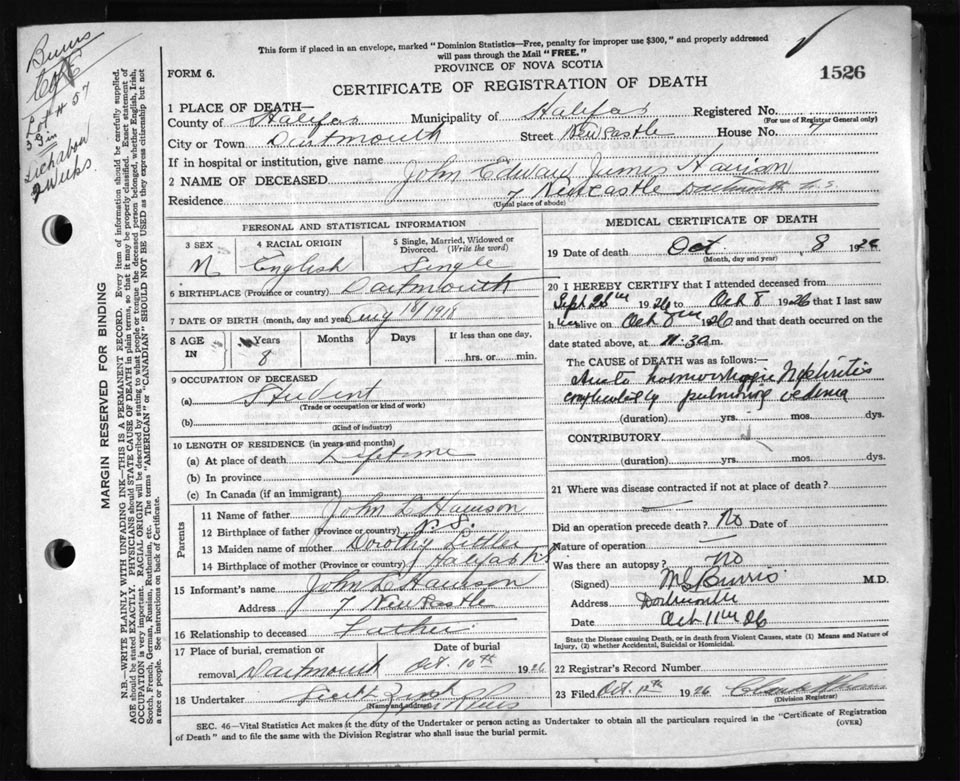 This form if placed in an envelope, marked "Dominion Statistics—Free, penalty for improper use $300," and properly addressed
will pass through the Mail "FREE."
PROVINCE OF NOVA SCOTIA
FORM 6.
CERTIFICATE OF REGISTRATION OF DEATH
1526
Lot # 57
MARGIN RESERVED FOR BINDING
N.B.—WRITE PLAINLY WITH UNFADING INK—THIS IS A PERMANENT RECORD. Every item of information should be carefully supplied.
AGE should be stated EXACTLY. PHYSICIANS should STATE CAUSE OF DEATH in plain terms, so that it may be properly classified. Exact statement of
OCCUPATION is very important. RACIAL ORIGIN will be described by stating to what people or tongue the deceased person belonged, whether English, Irish,
Scotch, French, German, Russian, Ruthenian, etc. The terms "AMERICAN" or "CANADIAN" SHOULD NOT BE USED as they express citizenship but not
a race or people. See instructions on back of Certificate.
1 PLACE OF DEATH—
County of Halifax Municipality of Halifax Registered No.
(For use of Registrar General only)
City or Town Dartmouth Street Newcastle House No. 7
If in hospital or institution, give name
2 NAME OF DECEASED John Edward James Harrison
Residence 7 Newcastle Dartmouth N.S.
(Usual place of abode)
PERSONAL AND STATISTICAL INFORMATION
3 SEX
4 RACIAL ORIGIN
5 Single, Married, Widowed or Divorced. (Write the word)
M English Single
6 BIRTHPLACE (Province or country) Dartmouth
7 DATE OF BIRTH (month, day and year) 18/1918
8 AGE IN Years Months Days If less than one day,
8 hrs. or min.
9 OCCUPATION OF DECEASED
(a) Student
(Trade or occupation or kind of work)
(b)
(Kind of industry)
10 LENGTH OF RESIDENCE (in years and months)
(a) At place of death Lifetime
(b) In province
(c) In Canada (if an immigrant)
Parents
11 Name of father John L Harrison
12 Birthplace of father (Province or country) N.S.
13 Maiden name of mother Dorothy Littler
14 Birthplace of mother (Province or country) Halifax N.S.
15 Informant's name John L Harrison
Address 7 Newcastle
16 Relationship to deceased Father
17 Place of burial, cremation or Date of burial
removal Dartmouth Oct. 10th 1926
18 Undertaker
(Name and address)
MEDICAL CERTIFICATE OF DEATH
19 Date of death Oct 8 1926
(Month, day and year)
20 I HEREBY CERTIFY that I attended deceased from
Sept 28th 1926 to Oct 8 1926 that I last saw
him alive on Oct 8th 1926 and that death occurred on
the date stated above, at 11.30 m.
The CAUSE of DEATH was as follows:
Acute hemorrhagic Nephritis
complicated by pulmonary oedema
(duration) yrs. mos. dys.
CONTRIBUTORY
(duration) yrs. mos. dys.
21 Where was disease contracted if not at place of death?
Did an operation precede death? No Date of
Nature of operation
Was there an autopsy? No
(Signed) M G Burris M.D.
Address Dartmouth
Date Oct 11th 26
State the Disease causing Death, or in death from Violent Causes, state (1) Means and Nature of
Injury, (2) whether Accidental, Suicidal or Homicidal.
22 Registrar's Record Number
23 Filed Oct. 12th 1926
(Division Registrar)
SEC. 46—Vital Statistics Act makes it the duty of the Undertaker or person acting as Undertaker to obtain all the particulars required in the "Certificate of Registration
of Death" and to file the same with the Division Registrar who shall issue the burial permit. (OVER)